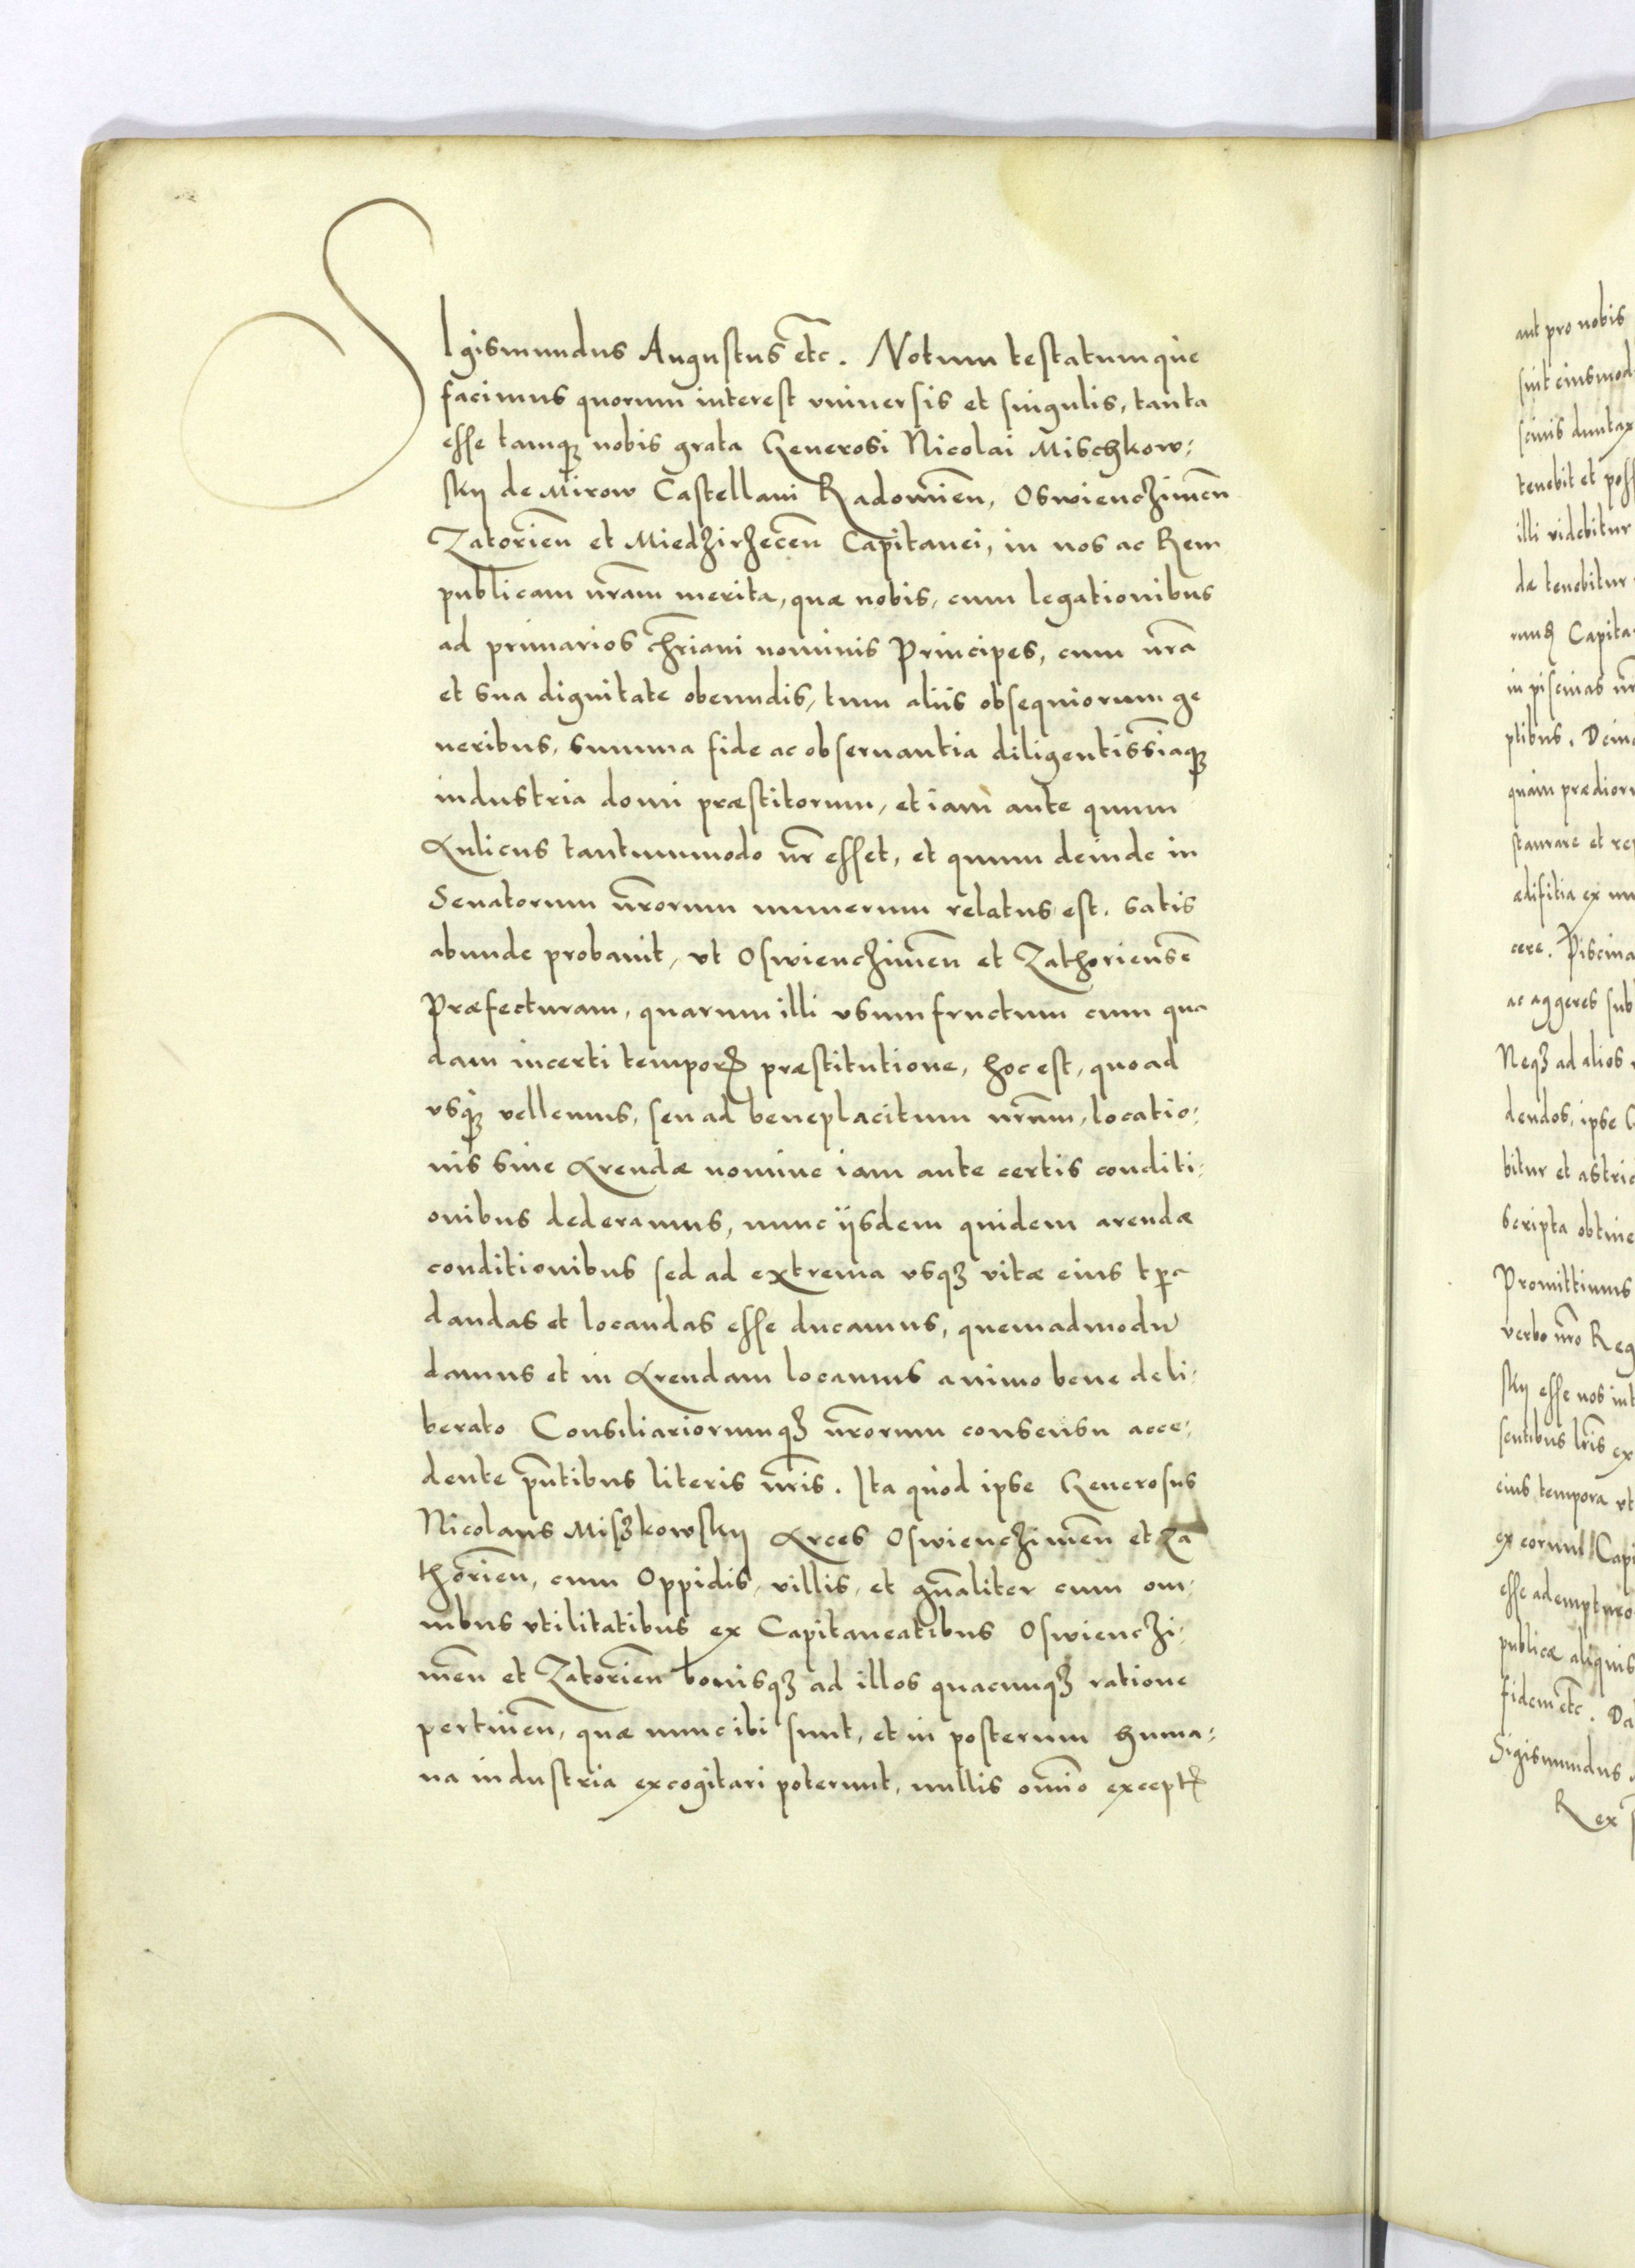 SIgismundus Augustus etc̃. Notum testatumque
facimus quorum interest vniuersis et singulis, tanta
esse tamqꝫ nobis grata Generosi Nicolai Mischkow-
skij de Mirow Castellani Radomieñ, Oswienczimeñ
Zatorieñ et Miedzirzeceñ Capitanei, in nos ac Rem
publicam nr̃am merita, quæ nobis, cum legationibus
ad primarios chr̃iani nominis Principes, cum nr̃a
et sua dignitate obeundis, tum aliis obsequiorum ge
neribus, summa fide ac obseruantia diligentissĩaqꝫ
industria domi præstitorum, et iam ante quum
Aulicus tantummodo nr̃ esset, et quum deinde in
Senatorum nr̃orum numerum relatus est. satis
abunde probauit, vt Oswienczimeñ et Zathorienſẽ
Præfecturam, quarum illi vsumfructum cum qua
dam incerti temporꝭ præstitutione, hoc est, quoad
vsqꝫ vellemus, seu ad beneplacitum nr̃um, locatio-
nis siue Arendæ nomine iam ante certis conditi-
onibus dederamus, nunc ijsdem quidem arendæ
conditionibus sed ad extrema vsqꝫ vitæ eius tp̃a
dandas et locandas esse ducamus, quemadmodũ
damus et in Arendam locamus animo bene deli-
berato Consiliariorumqꝫ nr̃orum consensu acce-
dente pñtibus literis nr̃is. Ita quòd ipse Generosus
Nicolaus Miszkowskij Arces Oswienczimeñ et Za
thorieñ, cum Oppidis, villis, et gñaliter cum om-
nibus vtilitatibus ex Capitaneatibus Oswienczi-
meñ et Zatorieñ bonisqꝫ ad illos quacunqꝫ ratione
pertineñ, quæ nunc ibi sunt, et in posterum huma-
na industria excogitari poterunt, nullis om̃io exceptꝭ
aut pro nobis
sint eiusmod
tenebit et poss
illi videbitur
dæ tenebitur
Capita
in piscinas
ptibus. Dein
quàm prædior
staurare et re
ædifitia ex
cere. Piscina
ac aggeres sub
Neqꝫ ad alios
dendos, ipse
bitur et astric
scripta obtine
Promittimus
verbo nr̃o Reg
skij esse nos int
sentibus lr̃is ex
eius tempora vt
ex eorum Capi
esse adempturo
publicæ aliquis
fidem etc̃. Da
Sigismundus
Rex